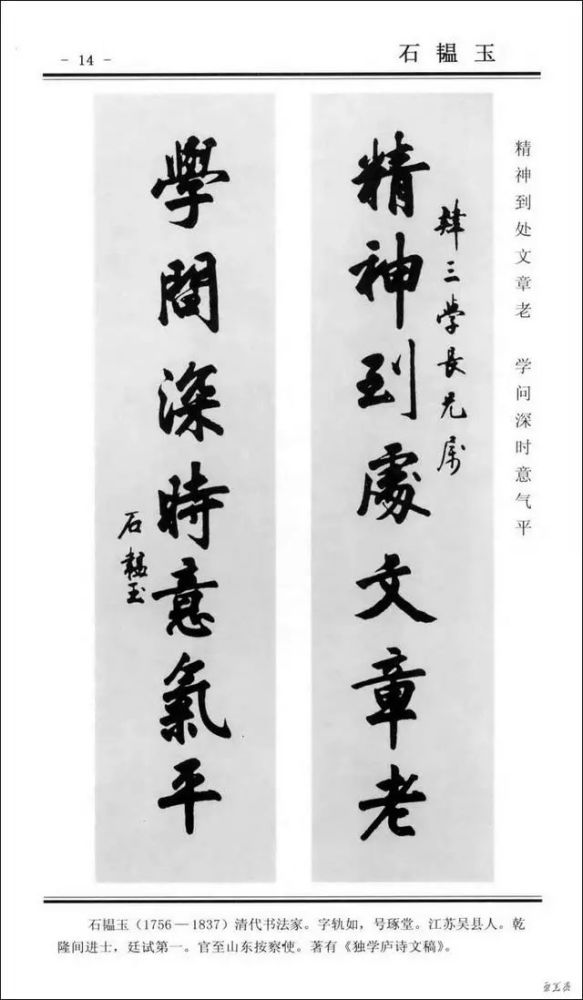 - 14 -
石韫玉
精神到处文章老 学问深时意气平
肄三学長兄属
精神到處文章老
學問深時意氣平
石韞玉
石韫玉（1756—1837）清代书法家。字轨如，号琢堂。江苏吴县人。乾
隆间进士，廷试第一。官至山东按察使。著有《独学庐诗文稿》。